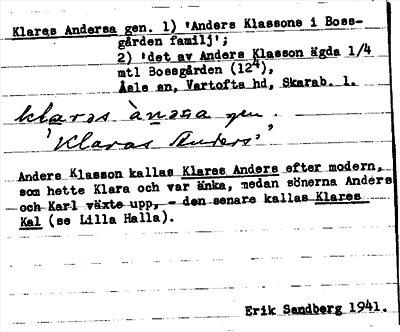 Klares Andersa gen. 1) 'Anders Klassons i Boss-
gården familj';
2) 'det av Anders Klasson ägda 1/4
mtl Bossgården (12⁴),
Åsle sn, Vartofta hd, Skarab. l.
klaras ànnsa gen.
'Klaras Anders'
Anders Klasson kallas Klares Anders efter modern,
som hette Klara och var änka, medan sönerna Anders
och Karl växte upp, - den senare kallas Klares
Kal (se Lilla Halla).
Erik Sandberg 1941.